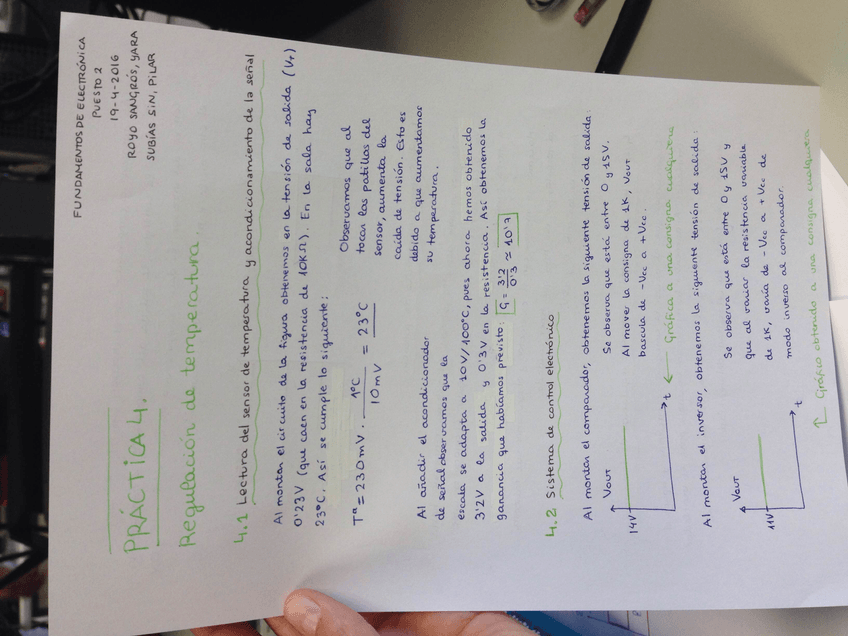 FUNDAMENTOS DE ELECTRÓNICA
PUESTO 2
19-4-2016
ROYO SANGRÓS, YARA
SUBÍAS SIN, PILAR
PRÁCTICA 4.
Regulación de temperatura
4.1 Lectura del sensor de temperatura y acondicionamiento de la señal
Al montar el circuito de la figura obtenemos en la tensión de salida (V+)
0'23V (que caen en la resistencia de 10KΩ). En la sala hay
23ºC. Así se cumple lo siguiente:
Tª = 230mV · 1ºC / 10mV = 23ºC
Observamos que al
tocar las patillas del
sensor, aumenta la
caída de tensión. Esto es
debido a que aumentamos
su temperatura.
Al añadir el acondicionador
de señal observamos que la
escala se adapta a 10V/100ºC, pues ahora hemos obtenido
3'2V a la salida y 0'3V en la resistencia. Así obtenemos la
ganancia que habíamos previsto: G = 3'2 / 0'3 ≈ 10'7
4.2 Sistema de control electrónico
Al montar el comparador, obtenemos la siguiente tensión de salida:
Vout
14V
t
Se observa que está entre 0 y 15V.
Al mover la consigna de 1K, Vout
bascula de -Vcc a +Vcc.
← Gráfica a una consigna cualquiera
Al montar el inversor, obtenemos la siguiente tensión de salida:
Vout
11V
t
Se observa que está entre 0 y 15V y
que al variar la resistencia variable
de 1K, varía de -Vcc a +Vcc de
modo inverso al comparador.
↑ Gráfico obtenido a una consigna cualquiera